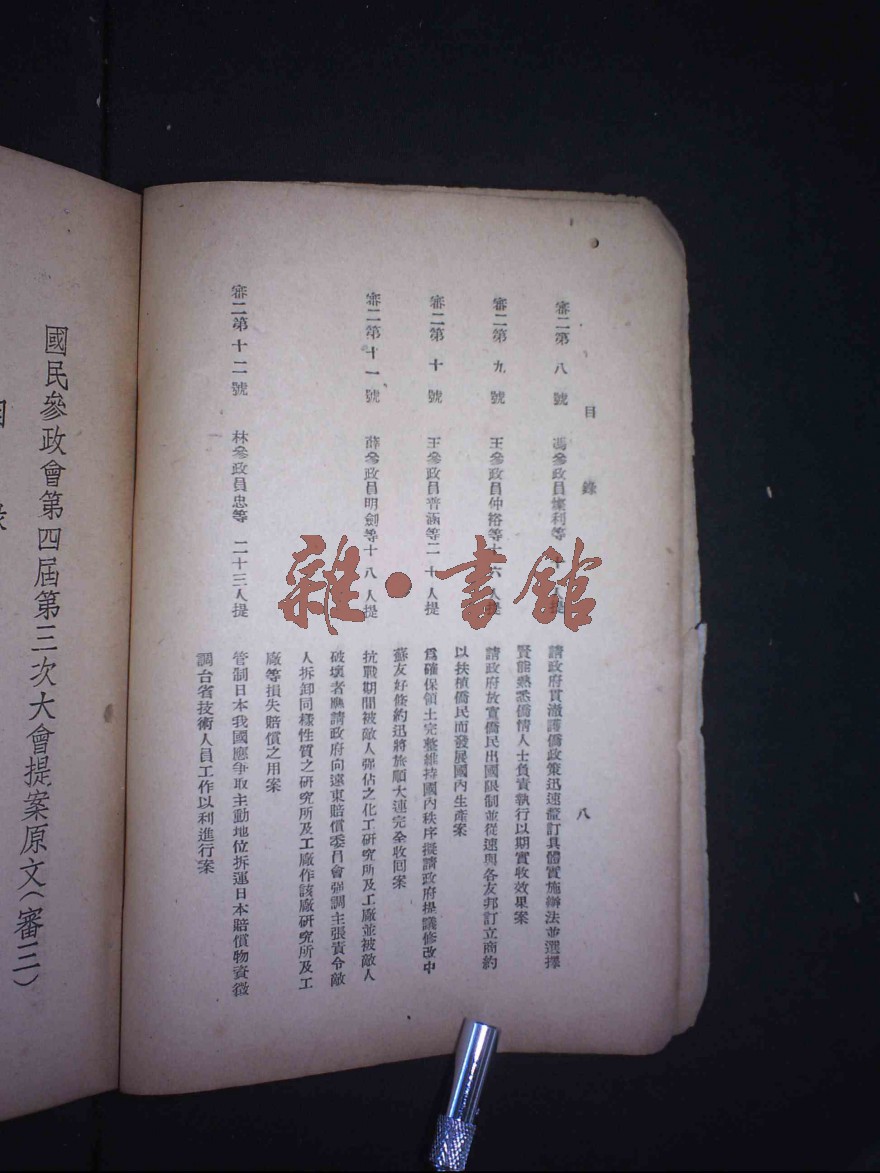 目錄
八
審二第八號 馮參政員燦利等 人提 請政府貫澈護僑政策迅速釐訂具體實施辦法並選擇
賢能熟悉僑情人士負責執行以期實收效果案
審二第九號 王參政員仲裕等 六人提 請政府放寬僑民出國限制並從速與各友邦訂立商約
以扶植僑民而發展國內生產案
審二第十號 王參政員普涵等二十人提 爲確保領土完整維持國內秩序擬請政府提議修改中
蘇友好條約迅將旅順大連完全收回案
審二第十一號 薛參政員明劍等十八人提 抗戰期間被敵人強佔之化工研究所及工廠並被敵人
破壞者應請政府向遠東賠償委員會強調主張責令敵
人拆卸同樣性質之研究所及工廠作該廠研究所及工
廠等損失賠償之用案
審二第十二號 林參政員忠等 二十三人提 管制日本我國應爭取主動地位拆運日本賠償物資徵
調台省技術人員工作以利進行案
國民參政會第四屆第三次大會提案原文(審三)
雜·書館